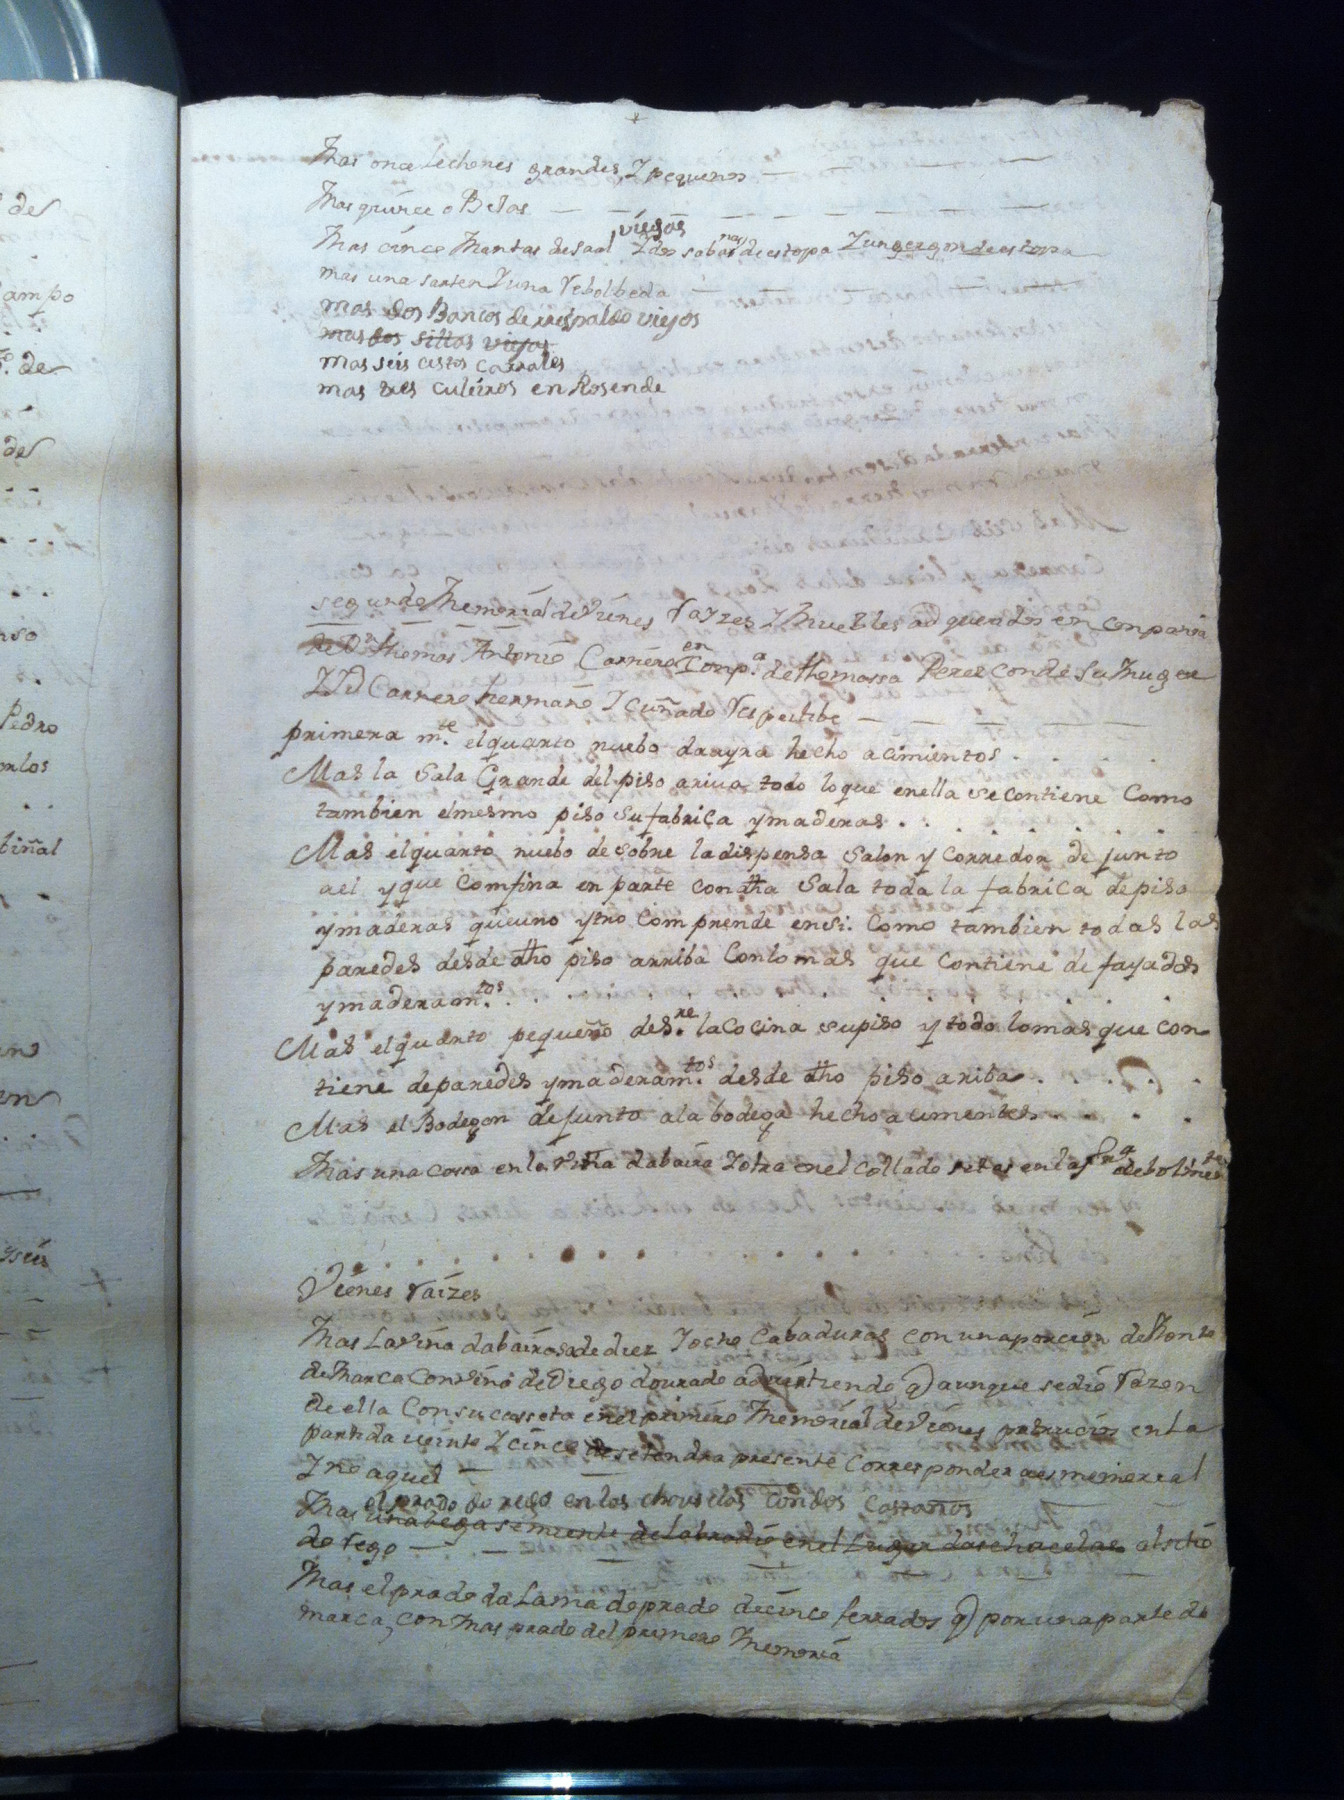 de
campo
de
de
Pedro
Mas once lechones grandes, Y pequenos
Mas quince oBejas
Mas cinco Mantas desaal viejas Y dos sabanas de estopa Yungergon de estopa
mas una sarten Yuna Rebolbeda
mas dos Bancos de respaldo viejos
mas dos sillas viejas
mas seis cestos carrales
mas tres culeiros en Rosende
segundo Memorial de Vienes Rayzes YMuebles adqueridos en conpania
de Dn thomas Antonio Carrero en Comp.a dethomassa Perez conde su Muger
YD Carrero hermano Y cuñado Respectibe
primera m.te elquarto nuebo darayra hecho acimientos
Mas la Sala Grande del piso ariva todo loque enella secontiene Como
tambien elmesmo piso su fabrica ymaderas
Mas elquarto nuebo desobre ladispensa Salon y Corredor de junto
ael yque Comfina en parte con dha Sala toda la fabrica depiso
ymaderas queuno yotro Comprende ensi. Como tambien todas las
paredes desde dho piso arriba Conlomas que Contiene de fayados
ymaderam.tos
Mas elquarto pequeño des.re laCocina supiso ytodo lomas que con
tiene deparedes ymaderam.tos desde dho piso ariba
Mas el Bodegon dejunto ala bodega hecho acimentes
Mas una cassa en la Viña dabaira Yotra enel collado sitas en la fra debolme
Vienes raizes
Mas LaViña dabaira de diez Yocho Cabaduras con unaporcion deMonte
deMarca Conviña de Diego dourado advertiendo q aunque sedio Razon
de ella Consu casseta enel primero Memorial de Vienes en La
partida veinte Y cinco setendra presente Corresponder aesmemorial
Yno aquel
Mas el prado do rego en los chouselas Con dos Castaños
una bega semiente delabradio enel Lugar das chacelas alsitio
do rego
Mas elprado da Lama deprado decinco ferrados q porunaparte de
marca, con Mas prado del primero Memoria